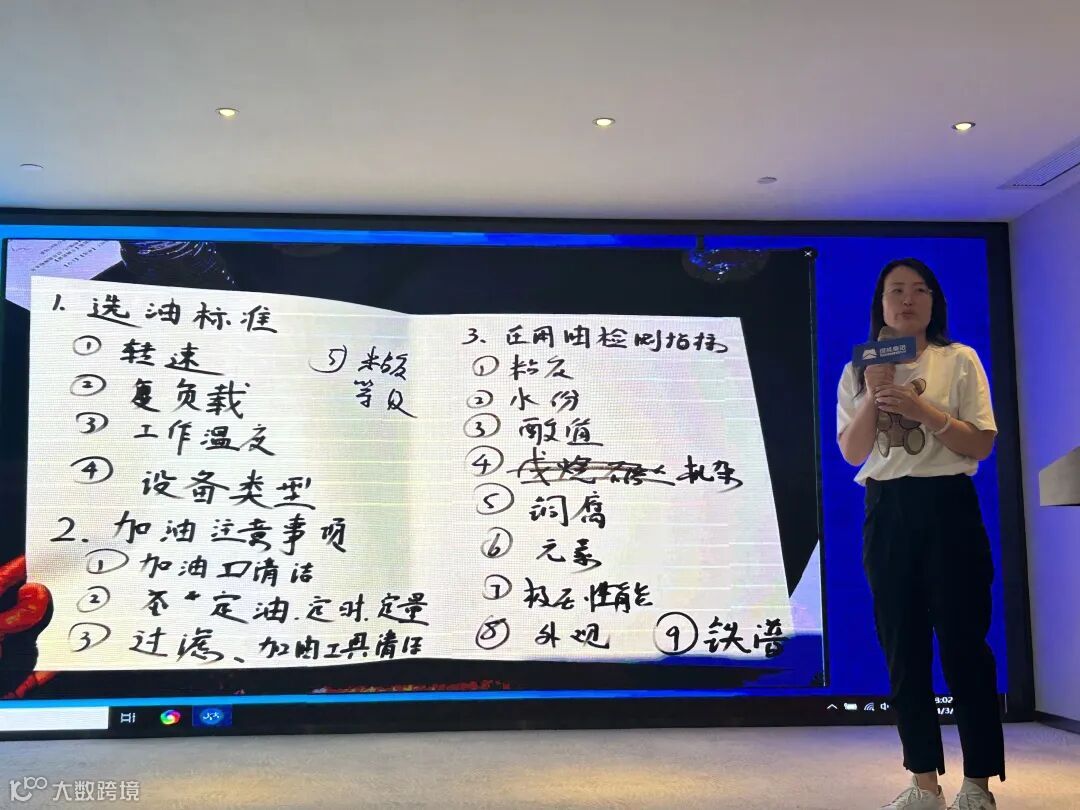 1. 选油标准
① 转速
② 负载
③ 工作温度
④ 设备类型
⑤ 粘度
等级
2. 加油注意事项
① 加油口清洁
② 定油.定时.定量
③ 过滤、加油工具清洁
3. 在用油检测指标
① 粘度
② 水份
③ 酸值
④ 机杂
⑤ 铜腐
⑥ 元素
⑦ 极压性能
⑧ 外观
⑨ 铁谱
8:02
大数跨境